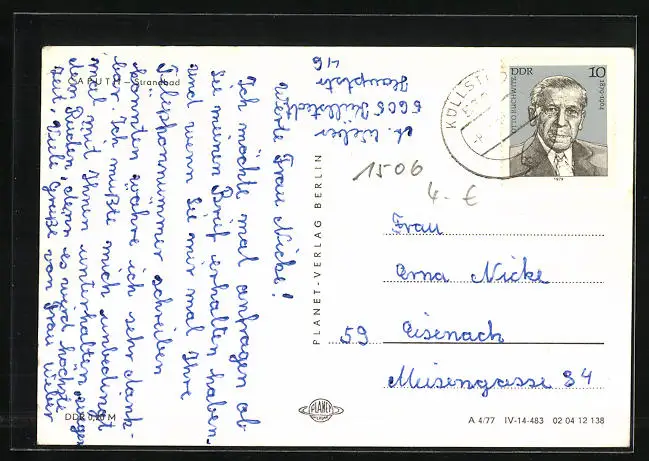 CAPUTH – Strandbad
A. Weber
5606 Küllstedt
Hauptstr
46
Werte Frau Nicke!
Ich möchte mal anfragen ob
Sie meinen Brief erhalten haben.
und wenn Sie mir mal Ihre
Telephonnümmer schreiben
könnten währe ich sehr dank-
bar. Ich müßte mich unbedingt
mal mit Ihnen unterhalten wegen
dem Ruden, denn es wird höchste
Zeit. Viele Grüße von Frau Weber
DDR 0,20 M
PLANET-VERLAG BERLIN
KÜLLSTEDT
DDR 10
OTTO BUCHWITZ
1879-1964
1979
1506
4.- €
Frau
Erna Nicke
59 Eisenach
Meisengasse 34
PLANET
A 4/77 IV-14-483 02 04 12 138